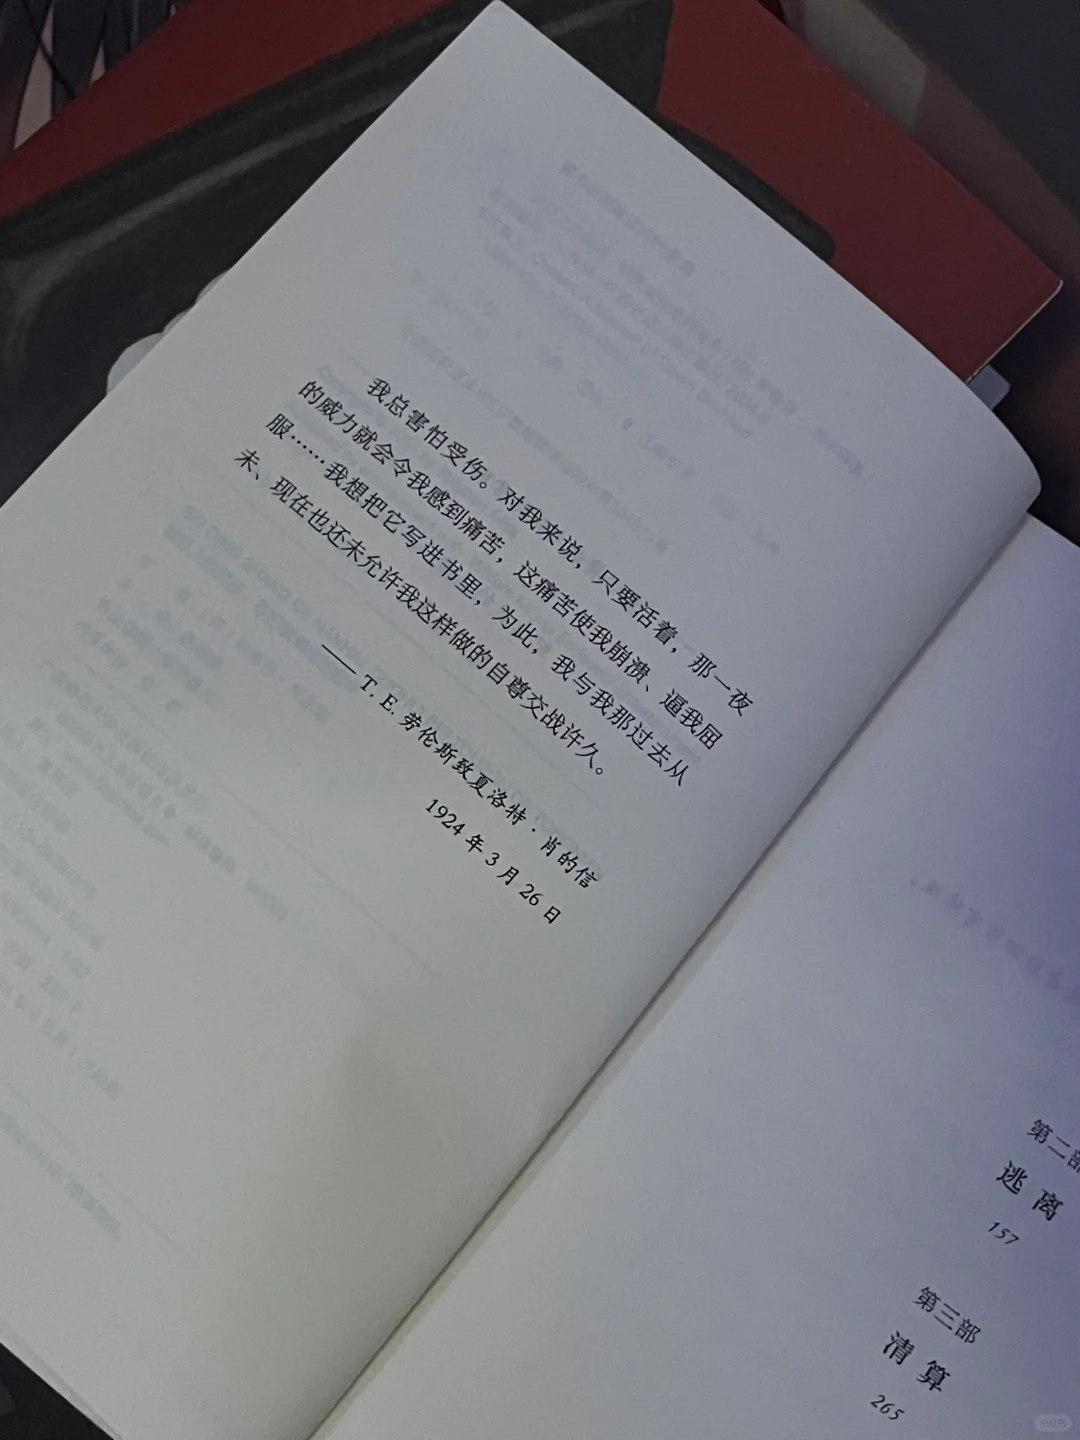 我总害怕受伤。对我来说，只要活着，那一夜
的威力就会令我感到痛苦，这痛苦使我崩溃、逼我屈
服……我想把它写进书里，为此，我与我那过去从
未、现在也还未允许我这样做的自尊交战许久。
—— T. E. 劳伦斯致夏洛特·肖的信
1924 年 3 月 26 日
第二部
逃离
157
第三部
清算
265
小红书